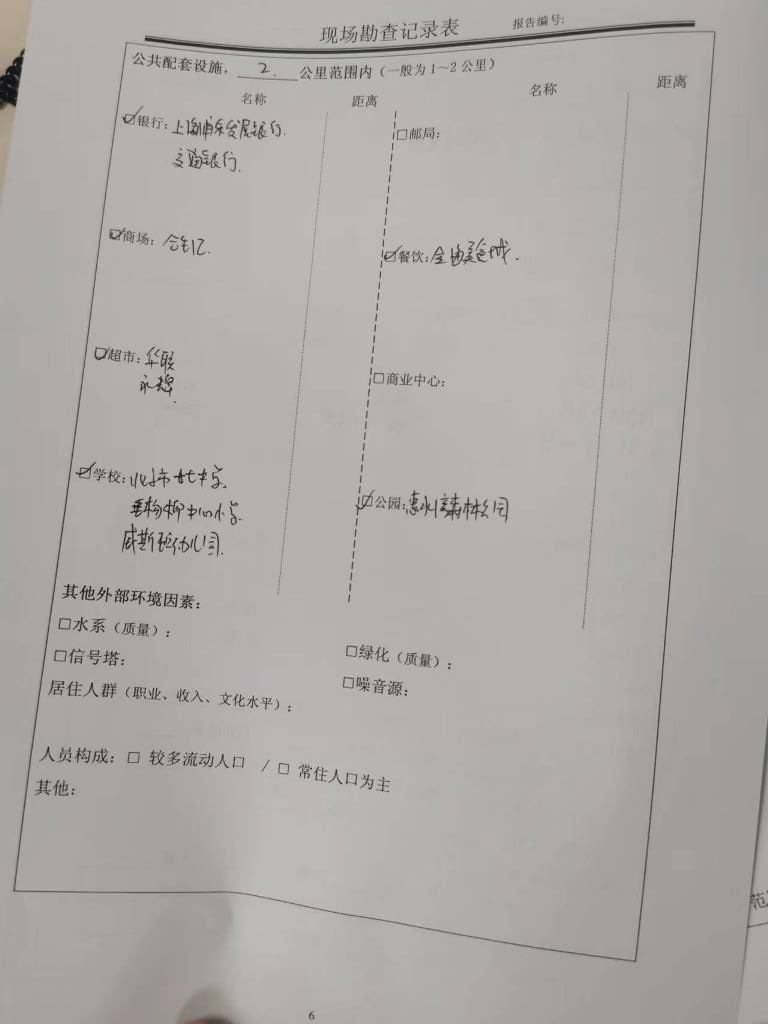 现场勘查记录表
报告编号:
公共配套设施，2.公里范围内（一般为1~2公里）
名称 距离 名称 距离
☑银行：上海浦东发展银行.
交通银行.
□邮局：
☑商场：合生汇.
☑餐饮：美食城.
☑超市：华联
永辉
□商业中心：
☑学校：北京市 中学
垂杨柳中心小学
幼儿园.
☑公园：森林公园
其他外部环境因素：
□水系（质量）：
□绿化（质量）：
□信号塔：
□噪音源：
居住人群（职业、收入、文化水平）：
人员构成：□ 较多流动人口 / □ 常住人口为主
其他：
6
范